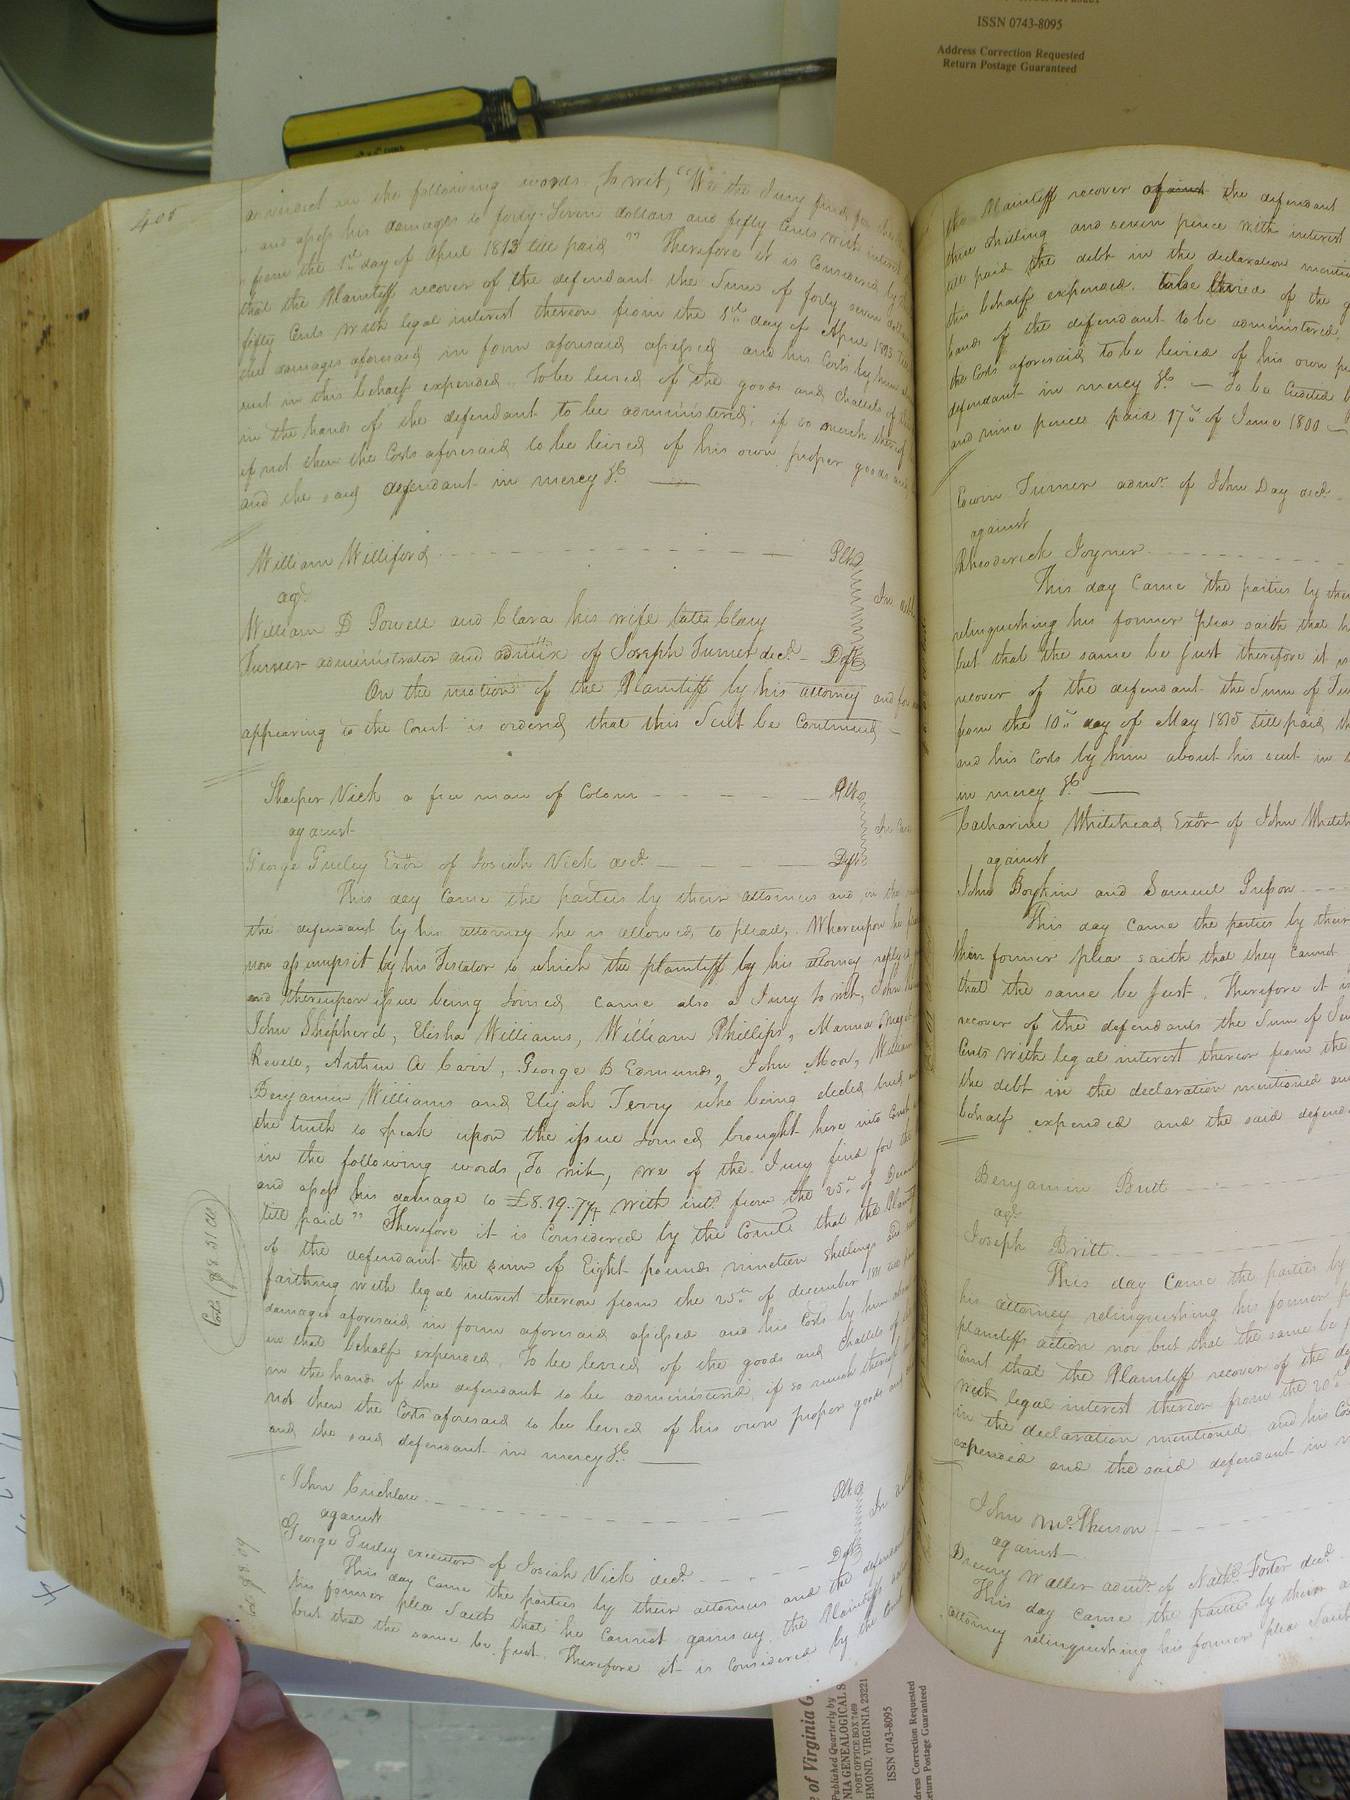 ISSN 0743-8095
Address Correction Requested
Return Postage Guaranteed
a verdict in the following words, To wit, "We the Jury find for the
and assess his damages to forty-seven dollars and fifty Cents with interest
from the 1st day of April 1813 till paid" Therefore it is Considered by
that the Plaintiff recover of the defendant the Sum of forty seven
fifty Cents with legal interest thereon from the 1st day of April 1813
the damages aforesaid in form aforesaid assessed and his Costs by him
suit in this behalf expended. To be levied of the goods and Chattels of
in the hands of the defendant to be administered, if so much thereof
if not then the Costs aforesaid to be levied of his own proper goods and
and the said defendant in mercy &c
William Williford Plt
agt
William D Powell and Clara his wife late Clary
Turner administrator and admix of Joseph Turner decd Dft
On the motion of the Plaintiff by his attorney and
appearing to the Court is ordered that this Suit be Continued
Sharper Vick a free man of Colour Plt
against In
George Gurley Exor of Josiah Vick decd Dft
This day Came the parties by their attornies and on the
the defendant by his attorney he is allowed to plead. Whereupon he
non assumpsit by his Testator to which the plaintiff by his attorney replied
and thereupon issue being Joined came also a Jury to wit, John
John Shepherd, Elisha Williams, William Phillips,
Revell, A Carr, George B Edmunds, John Moor, William
Benjamin Williams and Elijah Terry who being elected tried
the truth to speak upon the issue Joined brought here into Court
in the following words, To wit, we of the Jury find for the
and assess his damage to £8.19..7¼ with intt from the 25th of December
till paid" Therefore it is Considered by the Court that the Plaintiff
of the defendant the sum of Eight pounds nineteen Shillings
farthing with legal interest thereon from the 25th of december
damages aforesaid in form aforesaid assessed and his Costs by him about
in that behalf expended. To be levied of the goods and Chattels of
in the hands of the defendant to be administered, if so much thereof
not then the Costs aforesaid to be levied of his own proper goods and
and the said defendant in mercy &c
John Crichlow Plt
against In
George Gurley executor of Josiah Vick decd Dft
This day came the parties by their attornies and the defendant
his former plea Saith that he Cannot gainsay the Plaintiffs
but that the same be Just. Therefore it is Considered by the Court
the Plaintiff recover against the defendant
three shilling and seven pence with interest
till paid the debt in the declaration
this behalf expended. to be levied of the
hands of the defendant to be administered
the Costs aforesaid to be levied of his own
defendant in mercy &c To be Credited
and nine pence paid 17th of June 1800
Edwin Turner admr of John Day decd
against
Rhoderick Joyner
This day Came the parties by their
relinquishing his former plea saith that
but that the same be Just therefore it
recover of the defendant the Sum of
from the 10th day of May 1815 till paid
and his Costs by him about his suit in
in mercy &c
Catharine Whitehead Exor of John
against
John Boykin and Samuel
This day came the parties by their
their former plea saith that they Cannot
that the same be Just. Therefore it
recover of the defendants the Sum of
Cents with legal interest thereon from the
the debt in the declaration mentioned and
behalf expended and the said
Benjamin Britt
agt
Joseph Britt
This day Came the parties by
his attorney relinquishing his former
plaintiffs action nor but that the same be
Court that the Plaintiff recover of the
with legal interest thereon from the 20th
in the declaration mentioned and his
expended and the said defendant in
John McPherson
against
Drewry Waller admr of Nathl Foster decd
This day came the parties by their
attorney relinquishing his former plea
ISSN 0743-8095
Address Correction Requested
Return Postage Guaranteed
of Virginia G
Published Quarterly by
NIA GENEALOGICAL S
POST OFFICE BOX 7469
HMOND, VIRGINIA 23221